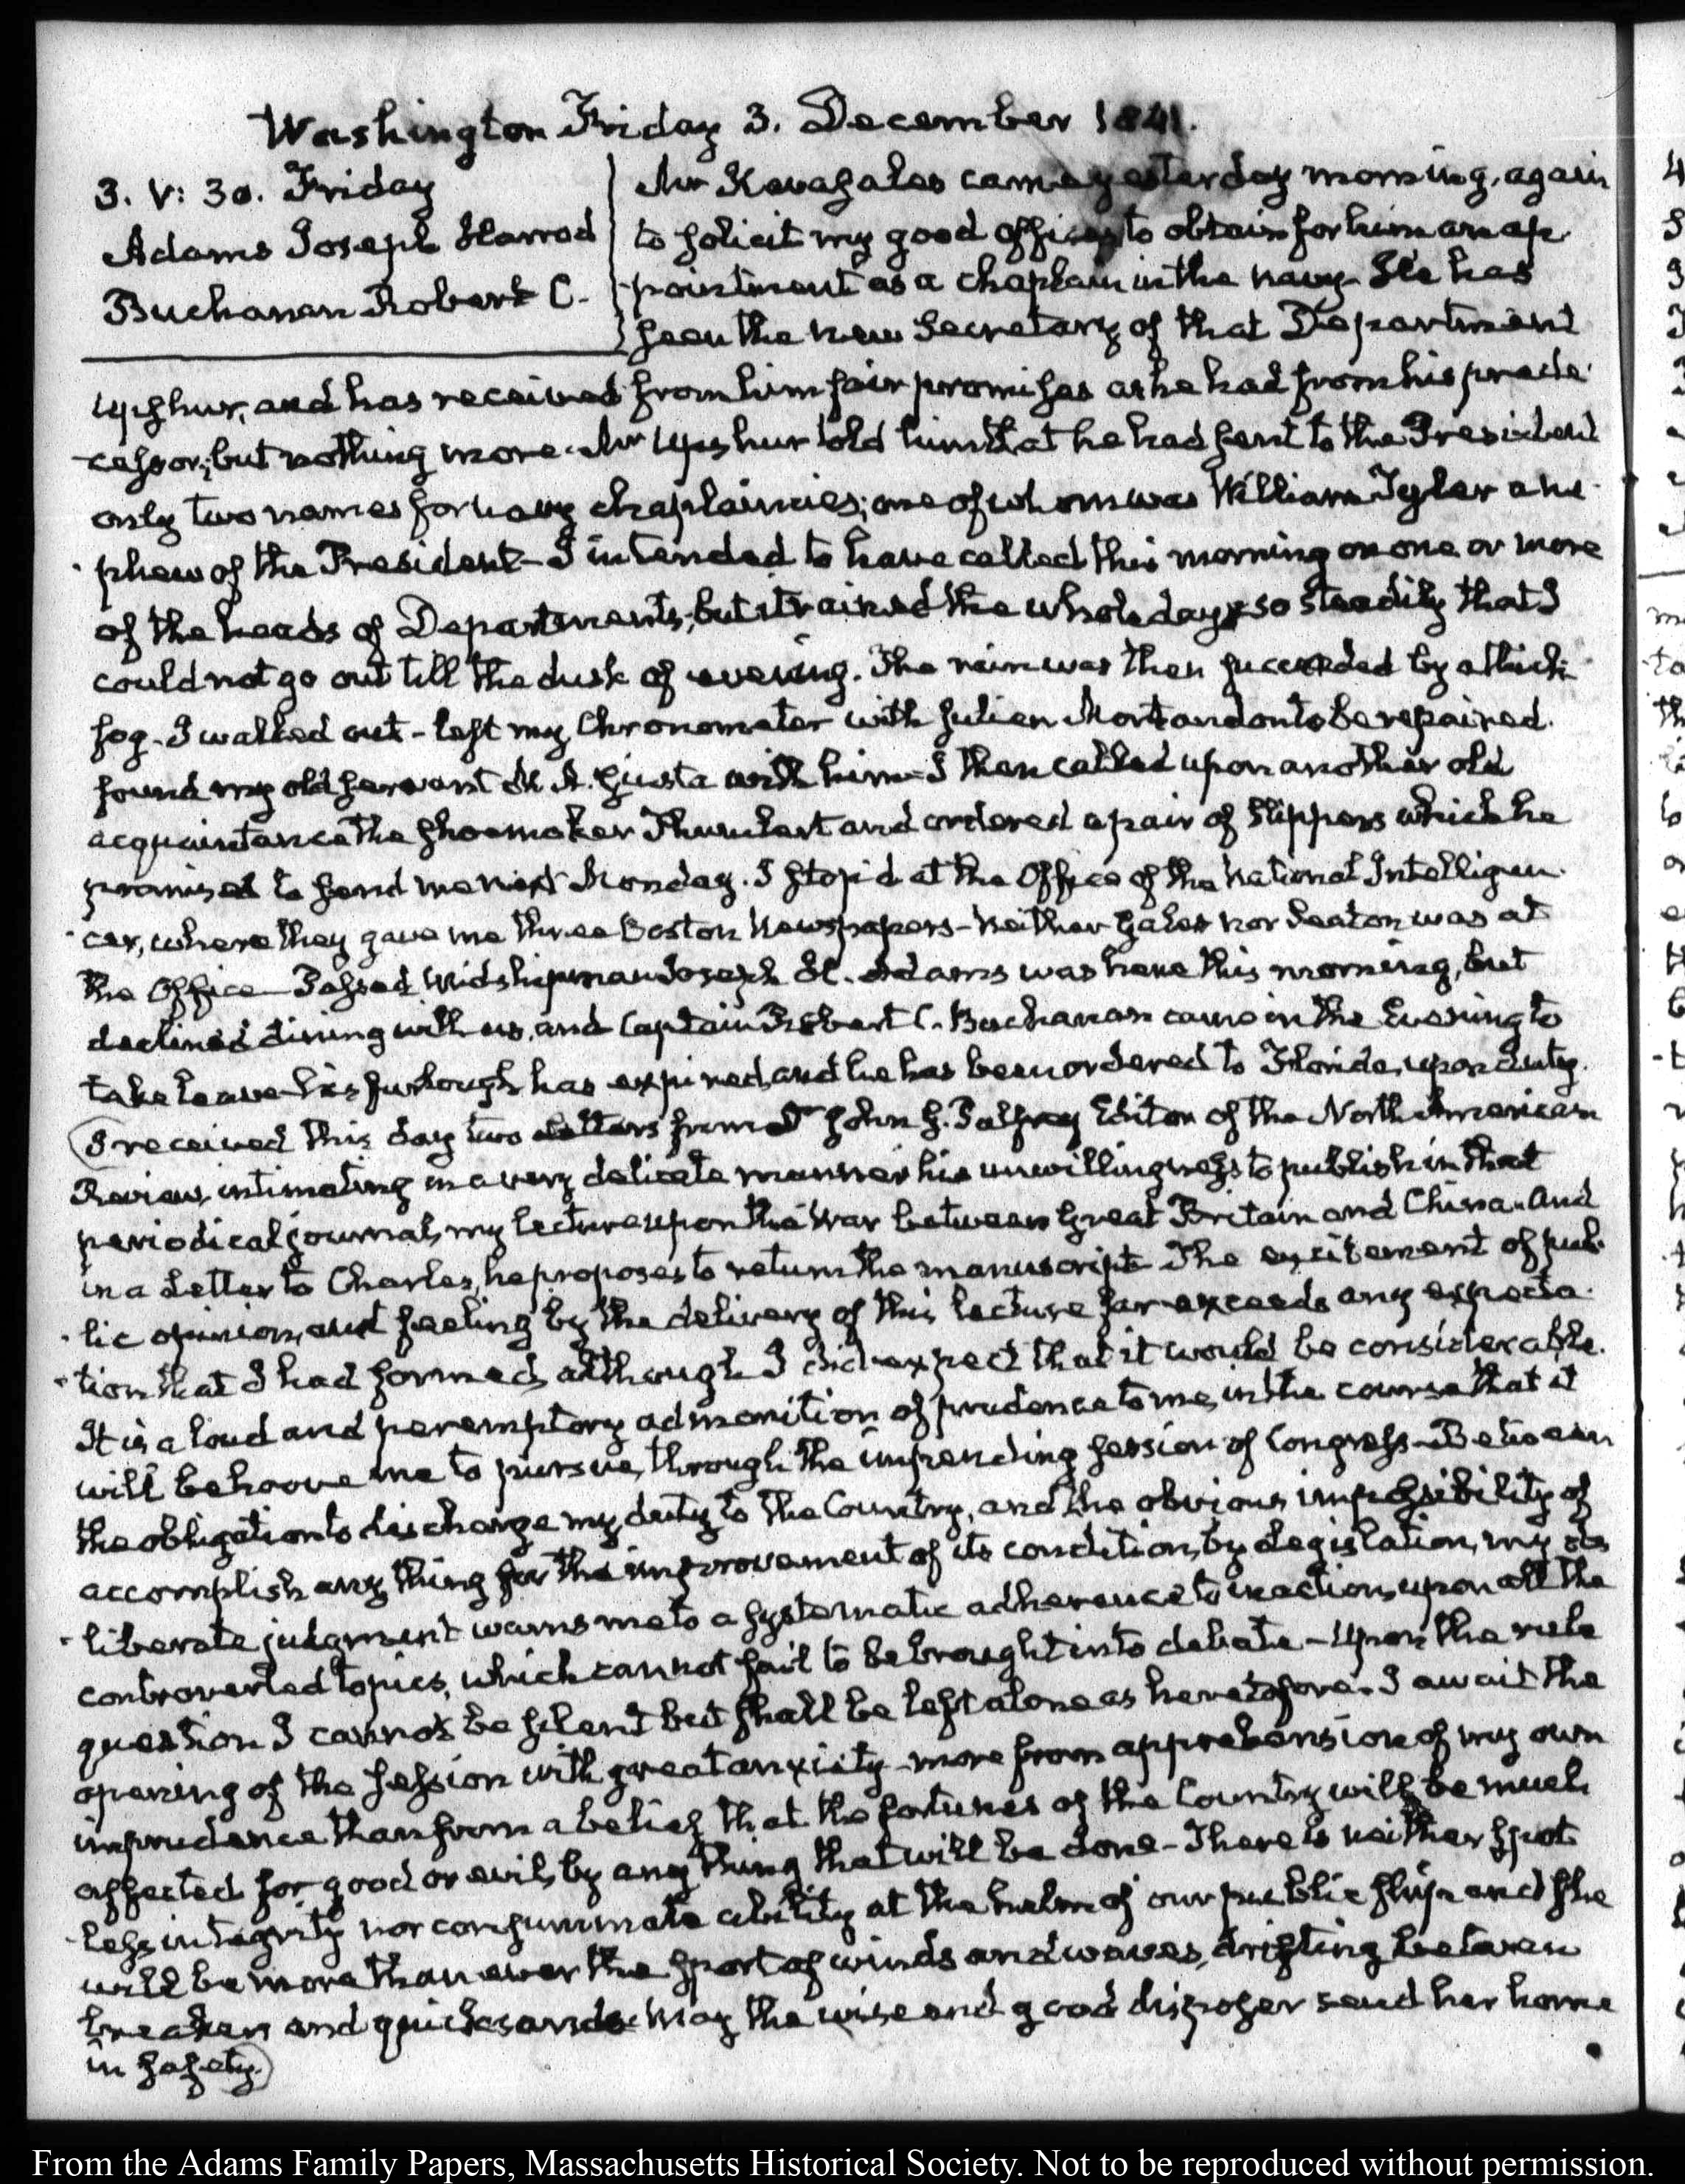 Washington Friday 3. December 1841.
3. V: 30. Friday
Adams Joseph Harrod
Buchanan Robert C.
Mr came yesterday morning, again
to solicit my good offices to obtain for him an ap
pointment as a chaplain in the navy. He has
seen the new Secretary of that Department
Upshur, and has received from him fair promises as he had from his prede
cessor; but nothing more. Mr Upshur told him that he had sent to the President
only two names for navy chaplaincies; one of whom was William Tyler a ne
phew of the President - I intended to have called this morning on one or more
of the heads of Departments, but it rained the whole day so steadily that I
could not go out till the dusk of evening. The rain was then succeeded by a thick
fog - I walked out - left my Chronometer with to be repaired.
found my old servant M. A. Giusta with him - I then called upon another old
acquaintance the shoemaker and ordered a pair of slippers which he
promised to send me next Monday. I stop'd at the Office of the National Intelligen
cer, where they gave me three Boston Newspapers - Neither Gales nor Seaton was at
the Office - Passed Midshipman Joseph H. Adams was here this morning, but
declined dining with us, and Captain Robert C. Buchanan came in the Evening to
take leave - his furlough has expired, and he has been ordered to Florida, upon duty.
I received this day two letters from Dr John G. Palfrey Editor of the North American
Review, intimating in a very delicate manner his unwillingness to publish in that
periodical journal, my lecture upon the War between Great Britain and China - And
in a Letter to Charles, he proposes to return the manuscript. The excitement of pub
lic opinion, and feeling by the delivery of this lecture far exceeds any expecta
tion that I had formed, although I did expect that it would be considerable.
It is a loud and peremptory admonition of prudence to me, in the course that it
will behoove me to pursue, through the impending session of Congress - Between
the obligation to discharge my duty to the Country, and the obvious impossibility of
accomplish any thing for the improvement of its condition, by Legislation, my de
liberate judgment warns me to a systematic adherence to inaction, upon all the
controverted topics, which cannot fail to be brought into debate - Upon the rule
question I cannot be silent but shall be left alone as heretofore. I await the
opening of the session with great anxiety - more from apprehension of my own
imprudence than from a belief that the fortunes of the Country will be much
affected for good or evil, by any thing that will be done - There is neither spot
less integrity nor consummate ability at the helm of our public ship and she
will be more than ever the sport of winds and waves, drifting between
breakers and quicksands - May the wise and good disposer send her home
in safety.
From the Adams Family Papers, Massachusetts Historical Society. Not to be reproduced without permission.